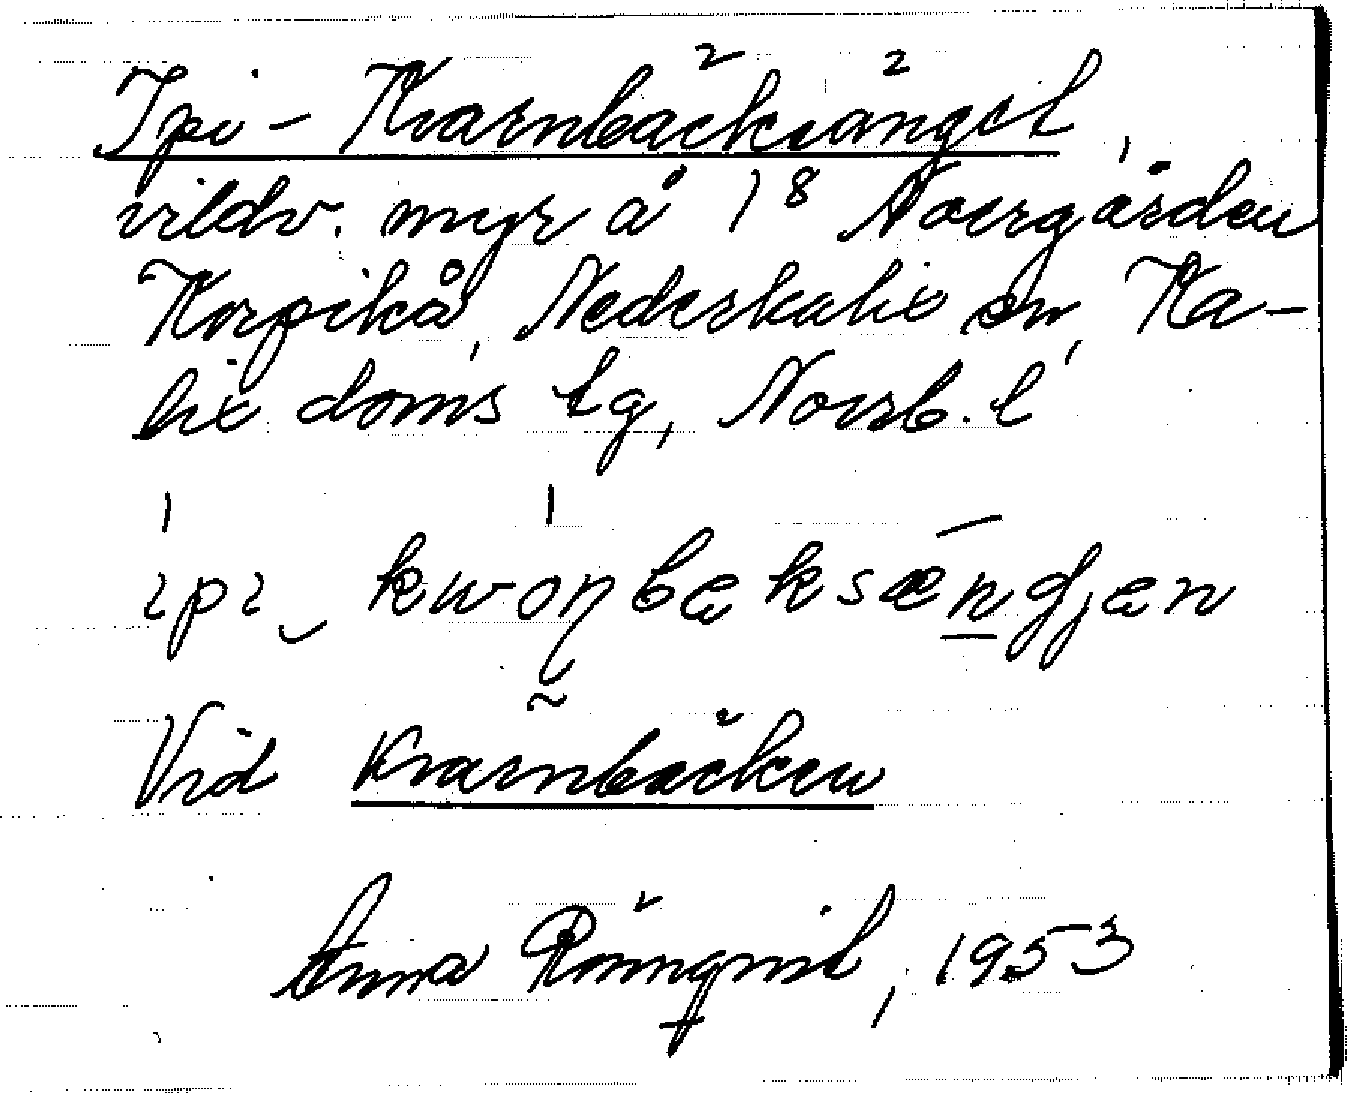 Ipi-Kvarnbäcksänget,
vildv. myr å 1⁸ Norrgården
Korpikå, Nederkalix sn, Ka-
lix doms lg, Norrb. l
ipi kwoɳbæksængjen
Vid Kvarnbäcken
Anna Römqvist, 1953